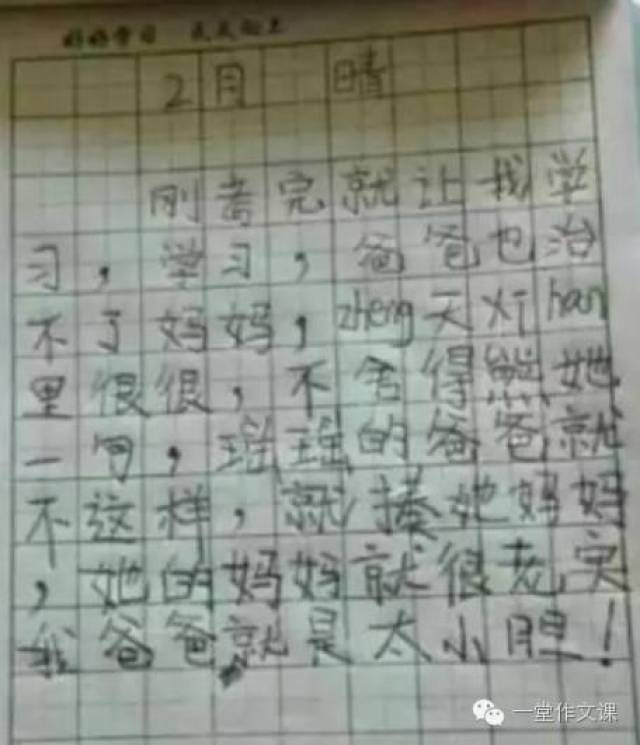 好好学习 天天向上
2月 晴
刚考完就让我学
习，学习，爸爸也治
不了妈妈，zheng天灯han
里很很，不舍得熊她
一句，瑶瑶的爸爸就
不这样，就揍她妈妈
，她的妈妈就很老实
我爸爸就是太小胆！
一堂作文课